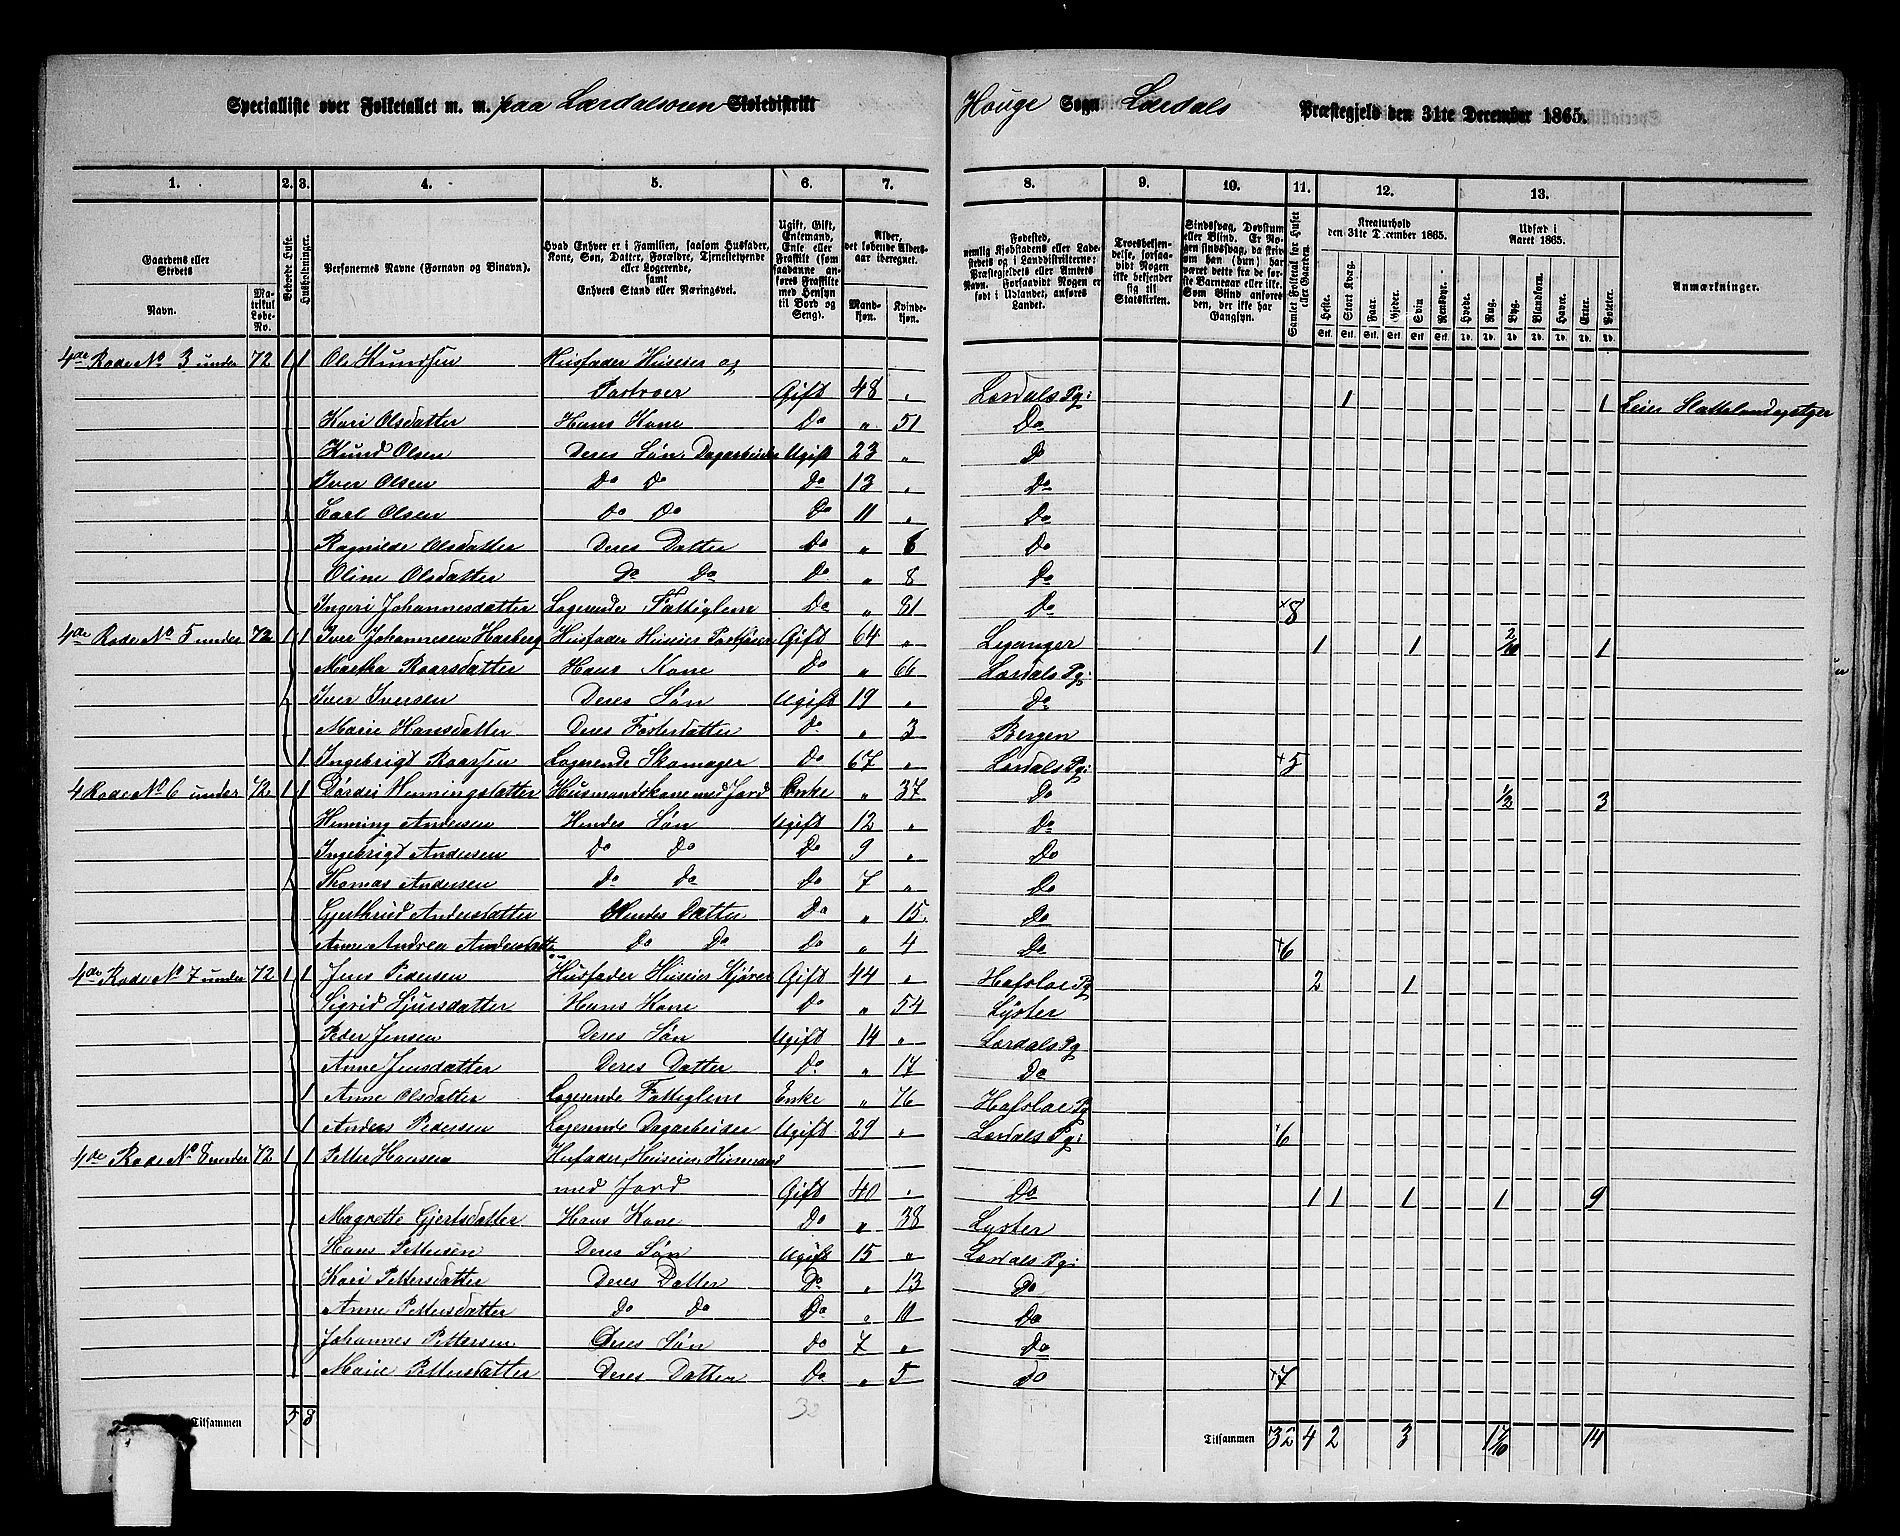 Specialliste over Folketallet m. m. paa Lærdalsøren Skoledistrikt Houge Sogn Lærdals Præstegjeld den 31te December 1865.
1. 2. 3. 4. 5. 6. 7. 8. 9. 10. 11. 12. 13.
Gaardens eller Stedets Navn. Matrikul Løbe-No. Beboede Huse. Husholdninger. Personernes Navne (Fornavn og Binavn).
Hvad Enhver er i Familien, saasom Husfader, Kone, Søn, Datter, Forældre, Tjenestetyende eller Logerende, samt Enhvers Stand eller Næringsvei.
Ugift, Gift, Enkemand, Enke eller Fraskilt (som saadanne anføres Fraskilte med Hensyn til Bord og Seng).
Alder, det løbende Alders-aar iberegnet. Mandkjøn. Kvindekjøn.
Fødested, nemlig Kjøbstadens eller Ladestedets og i Landdistrikterne: Præstegjeldets eller Amtets Navn. Forsaavidt Nogen er født i Udlandet, anføres Landet.
Troesbekjendelse, forsaavidt Nogen ikke bekjender sig til Statskirken.
Sindssvag, Døvstum eller Blind. Er Nogen sindssvag, da skrives om han (hun) har været dette fra de første Barneaar eller ikke. Som Blind anføres den, der ikke har Gangsyn.
Samlet Folketal for Huset eller Gaarden.
Kreaturhold den 31te December 1865. Heste. Stort Kvæg. Faar. Gjeder. Svin Rensdyr.
Udsæd i Aaret 1865. Hvede. Rug. Byg. Blandkorn. Havre. Erter. Poteter.
Anmærkninger.
4de Rode No 3 under 72 1 1 Ole Knudsen Husfader Huseier og
Gift 48 " Lærdals Pg: 1 1 Leier
Kari Olsdatter Hans Kone Do " 51 Do
Knud Olsen Deres Søn, Dagarbeider Ugift 23 " Do
Iver Olsen Do Do Do 13 " Do
Carl Olsen Do Do Do 11 " Do
Ragnilde Olsdatter Deres Datter Do " 6 Do
Oline Olsdatter Do Do Do " 8 Do
Ingeri Johannesdatter Logerende Fattiglem Do " 81 Do +8
4de Rode No 5 under 72 1 1 Iver Johannesen Husfader Huseier Gift 64 " Lyganger 1 1 2/10 1
Martha Roarsdatter Hans Kone Do " 66 Lærdals Pg:
Iver Iversen Deres Søn Ugift 19 " Do
Marie Hansdatter Deres Fosterdatter Do " 3 Bergen
1 Ingebrigt Roarsen Logerende Skomager Do 67 " Lærdals Pg: +5
4 Rode No 6 under 72 1 1 Gørdei Henningsdatter Husmandskone med Jord Enke " 37 Do 1/2 3
Henning Andersen Hendes Søn Ugift 12 " Do
Ingebrigt Andersen Do Do Do 9 " Do
Thomas Andersen Do Do Do 7 " Do
Gjertrud Andersdatter Hendes Datter Do " 15 Do
Anne Andrea Andersdatter Do Do Do " 4 Do +6
4de Rode No 7 under 72 1 1 Jens Pedersen Husfader Huseier Kjører Gift 44 " Hafsloe Pg 2 1
Sigrid Sjursdatter Hans Kone Do " 54 Lyster
Peder Jensen Deres Søn Ugift 14 " Lærdals Pg
Anne Jensdatter Deres Datter Do " 17 Do
1 Anne Olsdatter Logerende Fattiglem Enke " 76 Hafsloe Pg
1 Anders Pedersen Logerende Dagarbeider Ugift 29 " Lærdals Pg: +6
4de Rode No 8 under 72 1 1 Petter Hansen Husfader, Huseier, Husmand
med Jord Gift 40 " Do 1 1 1 1 9
Magrette Gjertsdatter Hans Kone Do " 38 Lyster
Hans Pettersen Deres Søn Ugift 15 " Lærdals Pg:
Kari Pettersdatter Deres Datter Do " 13 Do
Anne Pettersdatter Do Do Do " 10 Do
Johannes Pettersen Deres Søn Do 7 " Do
Marie Pettersdatter Deres Datter Do " 5 Do +7
Tilsammen 5 8 32 Tilsammen 32 4 2 3 1 7/10 14